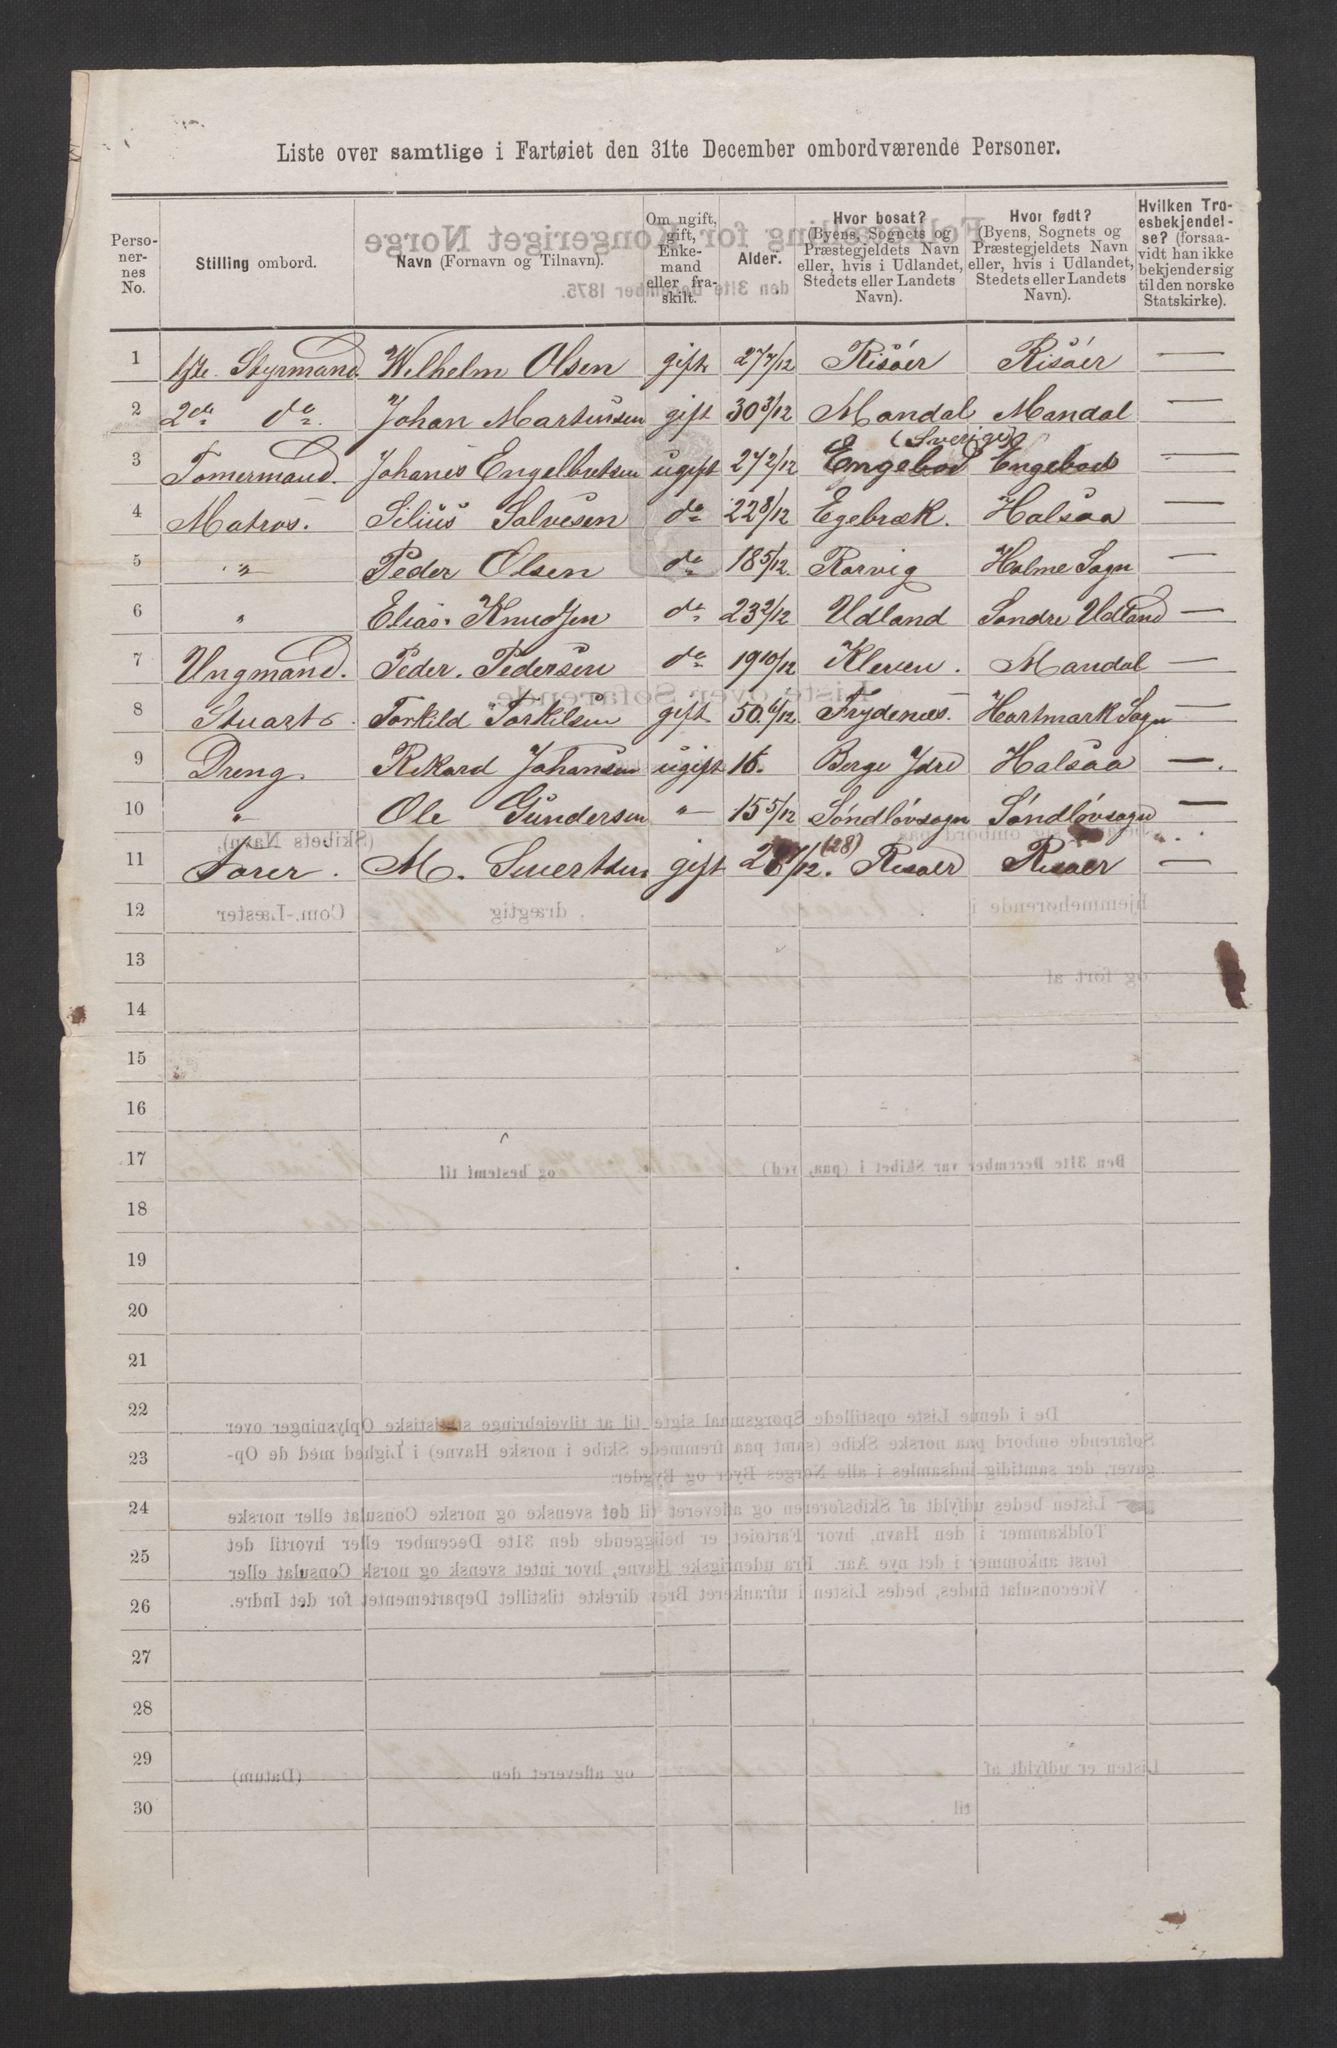 Liste over samtlige i Fartøiet den 31te December ombordværende Personer.
Perso-nernes No. | Stilling ombord. | Navn (Fornavn og Tilnavn). | Om ugift, gift, Enkemand eller fraskilt. | Alder. | Hvor bosat? (Byens, Sognets og Præstegjeldets Navn eller, hvis i Udlandet, Stedets eller Landets Navn). | Hvor født? (Byens, Sognets og Præstegjeldets Navn eller, hvis i Udlandet, Stedets eller Landets Navn). | Hvilken Troesbekjendelse? (forsaavidt han ikke bekjender sig til den norske Statskirke).
1 1ste Styrmand Wilhelm Olsen gift 27 7/12 Risöer Risöer —
2 2den do. Johan Martinsen gift 30 3/12 Mandal Mandal —
(Sverige)
3 Tømermand. Johanes Engelbretsen ugift 27 2/12 Engebod Engebod —
4 Matros. Silius Salvesen do 22 8/12 Egebræk. Halsaa —
5 " Peder Olsen do 18 5/12. Rarvig Holme Sogn —
6 " Elias Knudsen do 23 2/12 Udland Søndre Udland —
7 Ungmand. Peder. Pedersen do 19 10/12 Kleven. Mandal —
8 Stuart. Torkild Torkilsen gift 50. 6/12 Frydenæs. Hartmark Sogn —
9 Dreng. Rikard Johansen ugift 16. Berge Ydre Halsaa —.
10 " Ole Gundersen " 15 5/12 Söndlövsogn Söndlövsogn —
11 Förer. M. Sivertsen gift 28 7/12. (28) Risöer Risöer —
12
13
14
15
16
17
18
19
20
21
22
23
24
25
26
27
28
29
30